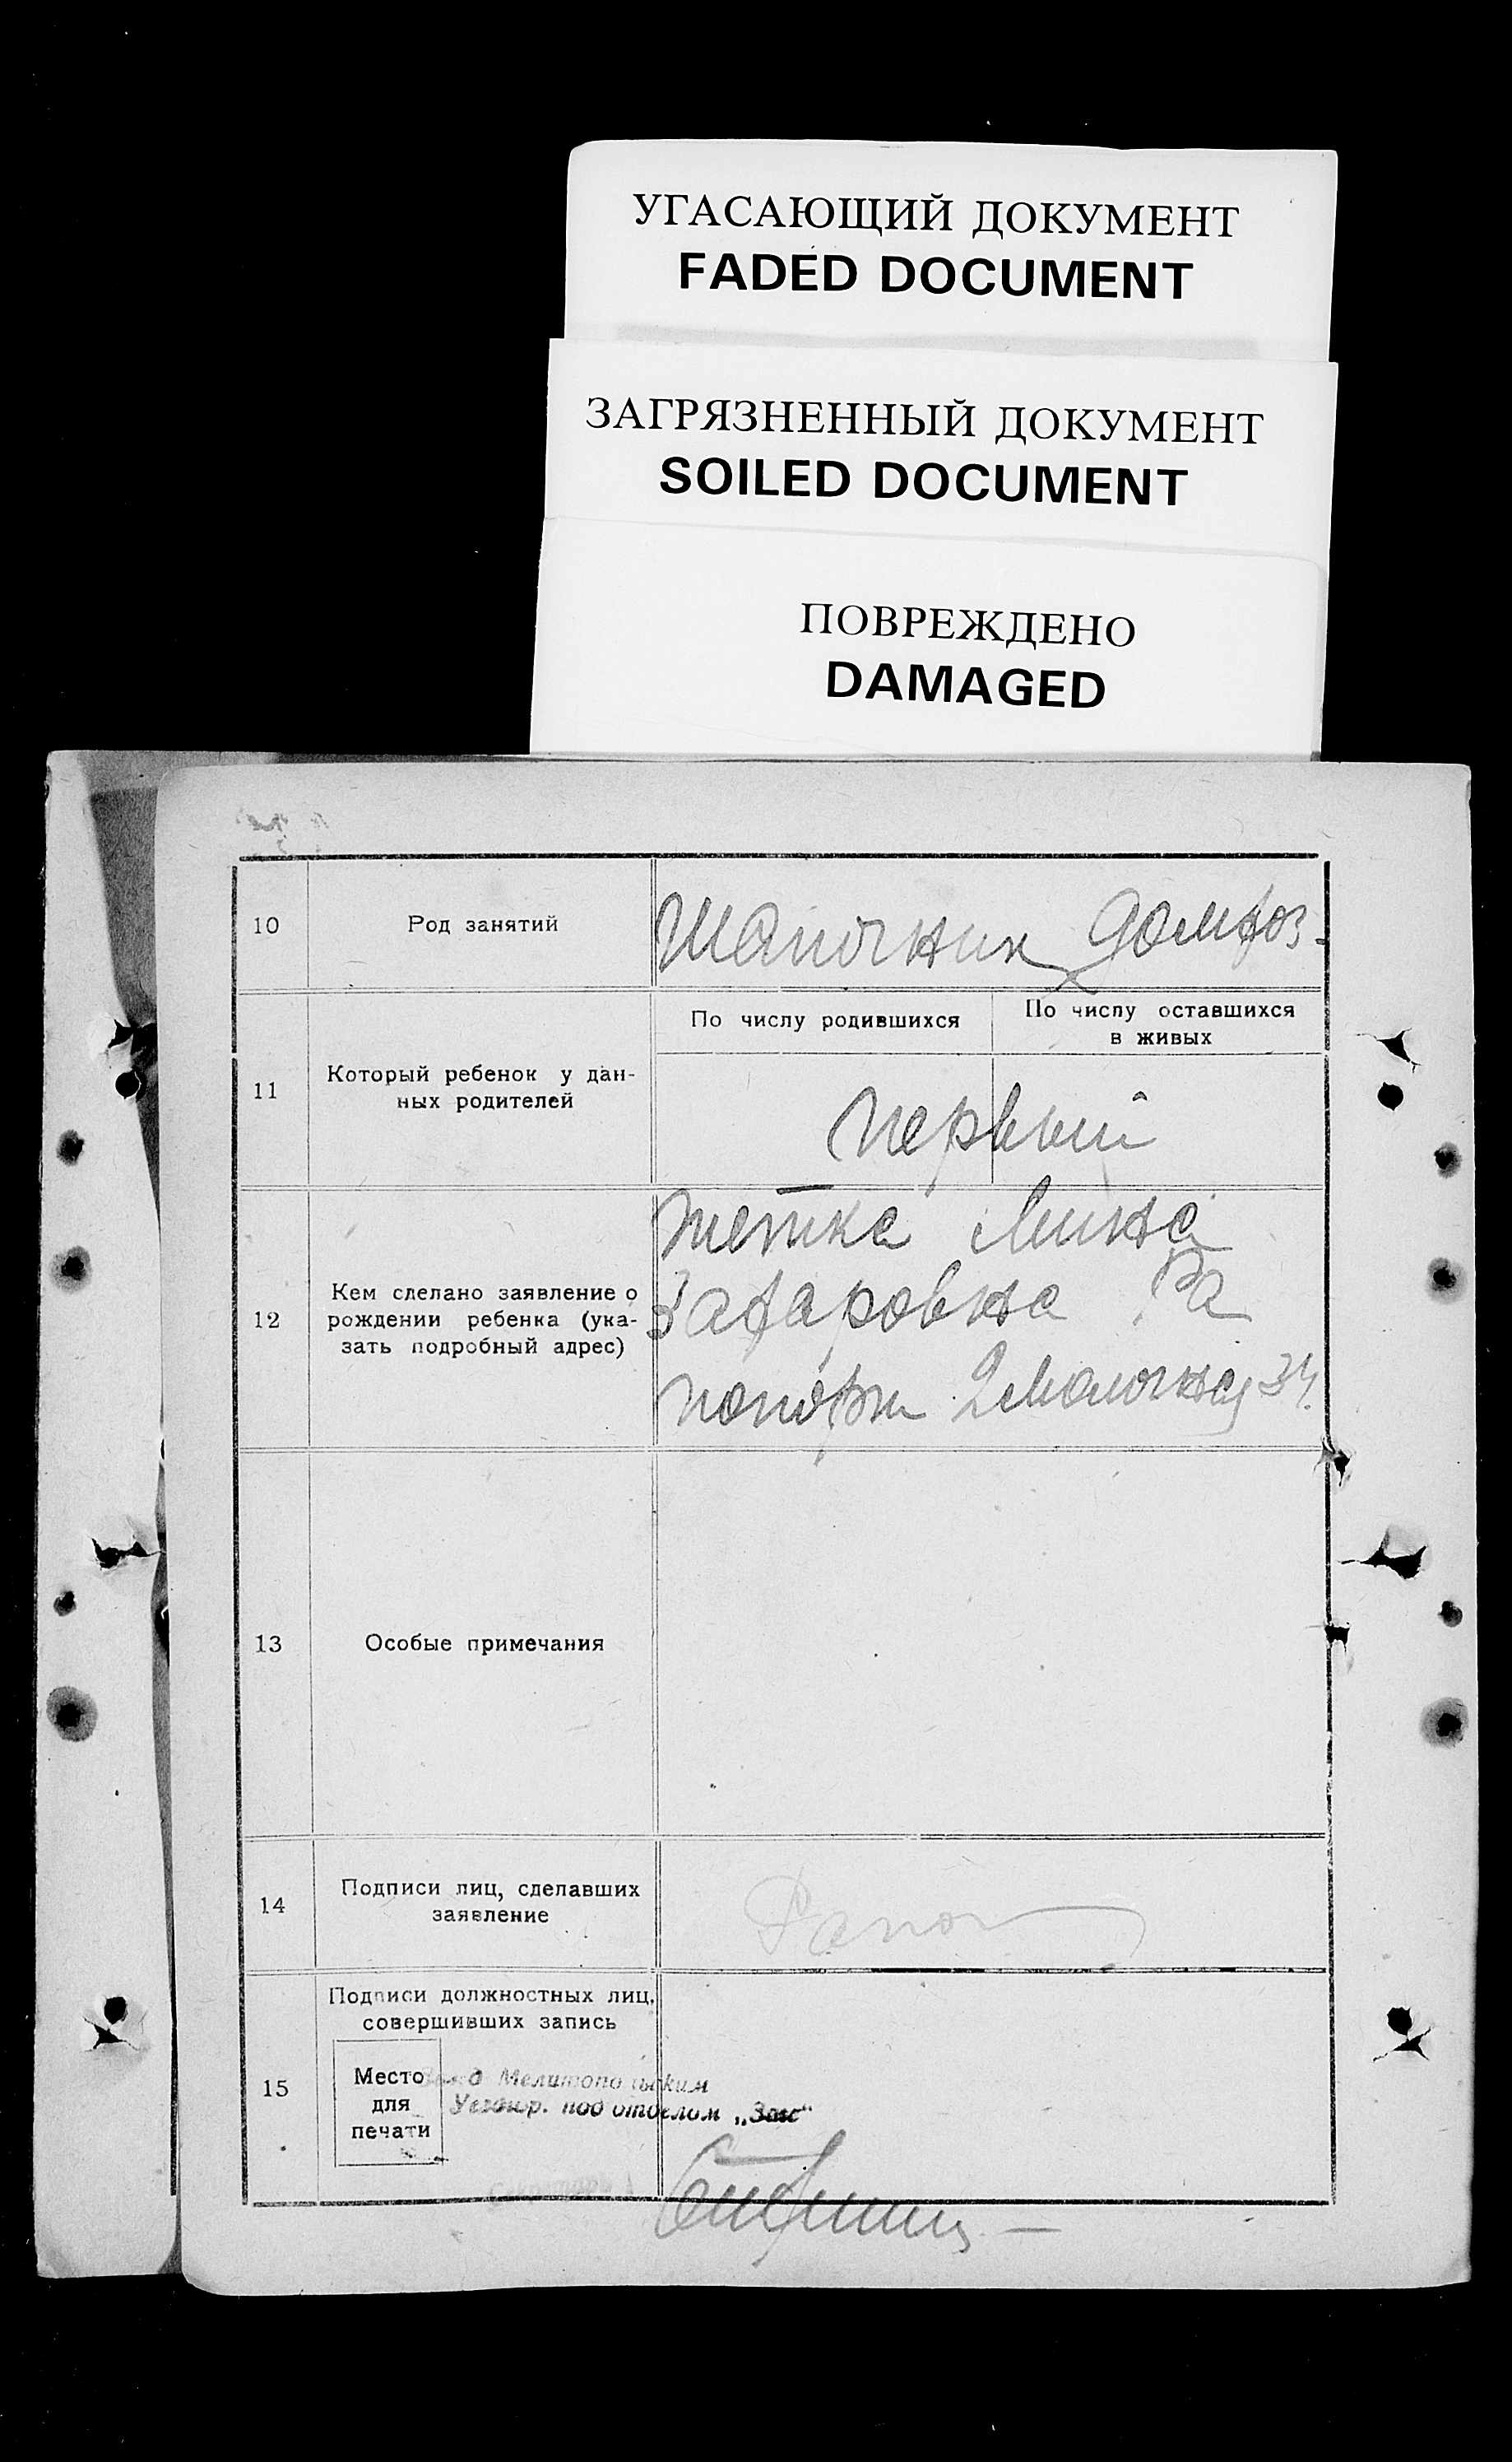 УГАСАЮЩИЙ ДОКУМЕНТ
FADED DOCUMENT
ЗАГРЯЗНЕННЫЙ ДОКУМЕНТ
SOILED DOCUMENT
ПОВРЕЖДЕНО
DAMAGED
10
Род занятий
Шапочник домхоз-
11
Который ребенок у дан-
ных родителей
По числу родившихся
По числу оставшихся
в живых
первый
12
Кем сделано заявление о
рождении ребенка (ука-
зать подробный адрес)
тетка Мина
Захаровна Ра
попорт 2 Молочная 34.
13
Особые примечания
14
Подписи лиц, сделавших
заявление
Рапоп
15
Подписи должностных лиц,
совершивших запись
Место
для
печати
Мелитопольским
под отделом „Загс“